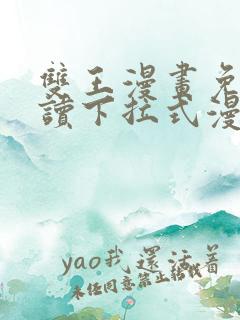 雙王漫畫免
讀下拉式漫
yao我還活着
未經同意禁止轉載